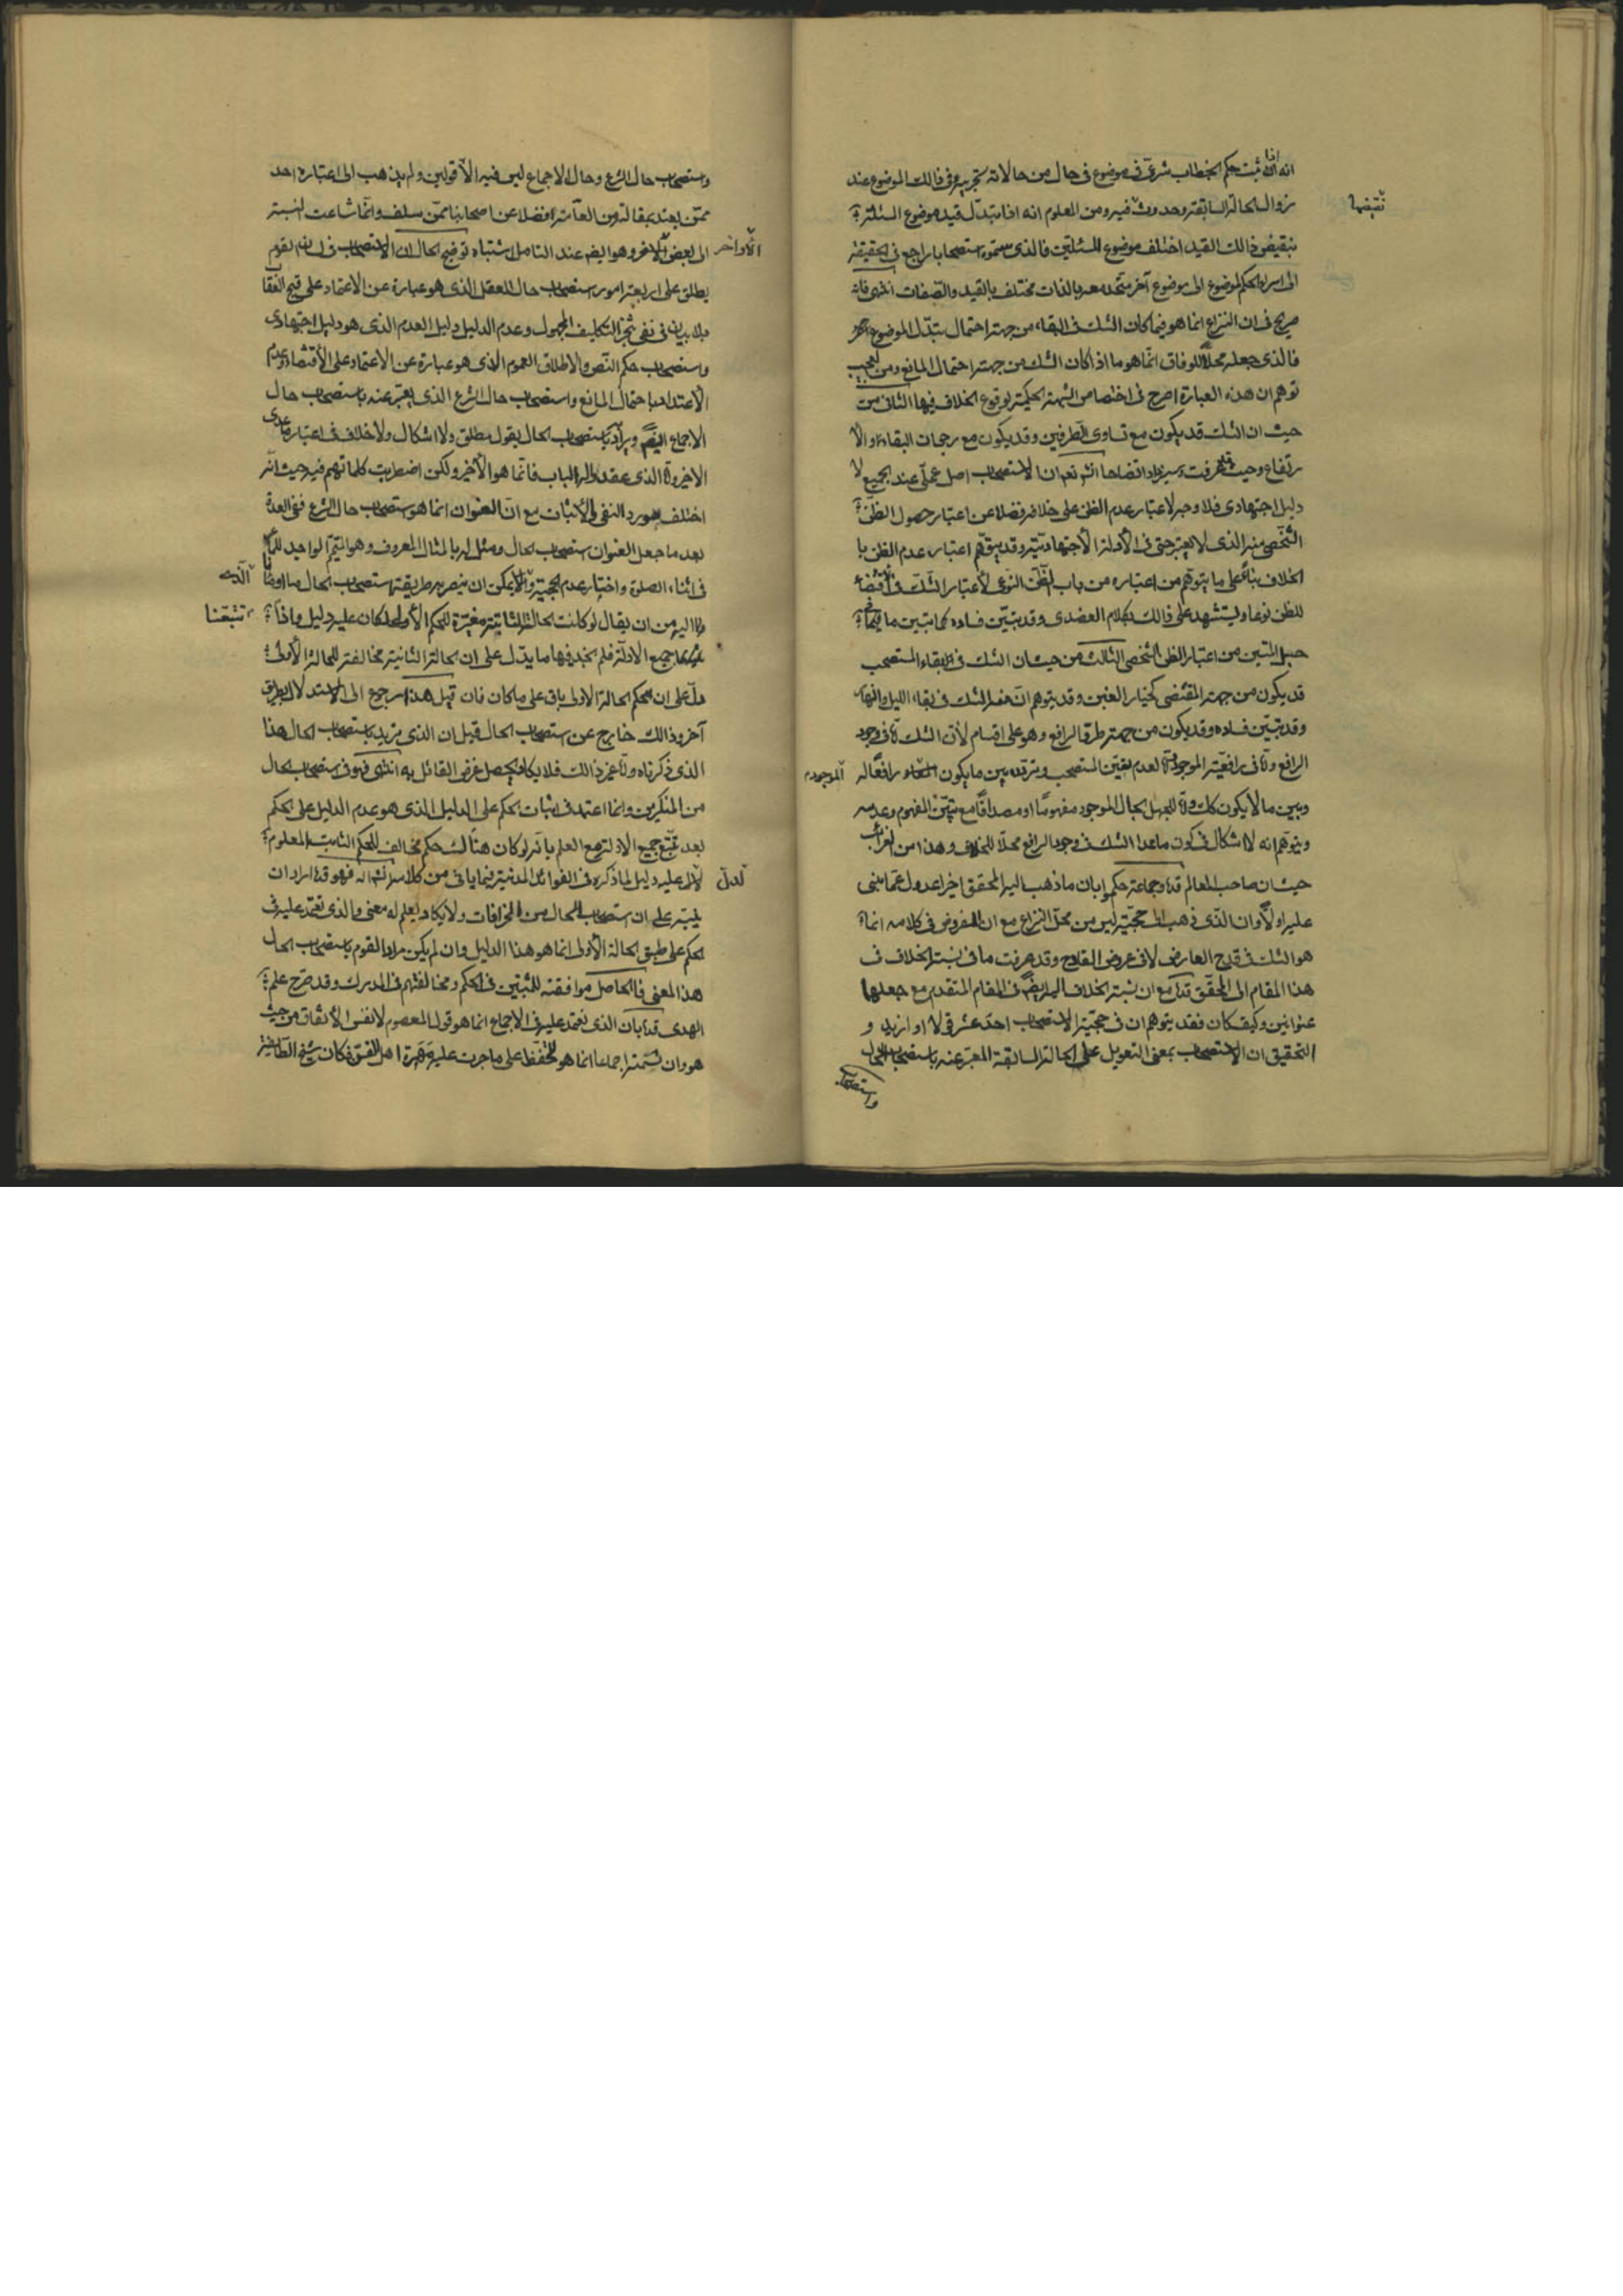 انه اذا ثبت حكم الخطاب شرعي في موضوع في حال من حالاته نجريه في ذالك الموضوع عند
زوال الحالة السابقة وحدوث فيه ومن المعلوم انه اذا تبدل قيد موضوع المسئلة
نقيضها
بنقيض ذالك القيد اختلف موضوع المسئلتين فالذي سموه استصحابا راجع في الحقيقة
الى اسراء حكم لموضوع الى موضوع آخر متحد معه بالذات مختلف بالقيد والصفات انتهى فانه
صريح في ان النزاع انما هو فيما كان الشك في البقاء من جهة احتمال تبدل الموضوع
فالذي جعله محلا للوفاق انما هو ما اذا كان الشك من جهة احتمال المانع ومن العجيب
توهم ان هذه العبارة اصرح في اختصاص الشبهة الحكمية بوقوع الخلاف فيها الثاني من
حيث ان الشك قد يكون مع تساوي الطرفين وقد يكون مع رجحان البقاء او الا
رتفاع وحيث عرفت وسيزداد اتضاحا انش تعم ان الاستصحاب اصل عملي عند الجميع لا
دليل اجتهادي فلا وجه لاعتبار عدم الظن على خلافه فضلا عن اعتبار حصول الظن
الشخصي منه الذي لا يعتبر حتى في الأدلة الأجتهادية وقد يتوهم اعتبار عدم الظن با
الخلاف بناء على ما يتوهم من اعتباره من باب الظن النوعي لأعتبار الشك في اقتضاء
للظن نوعا ويستشهد على ذالك بكلام العضدي وقد تبين فساده كما تبين ما فيما في
حبل المتين من اعتبار الظن الشخصي الثالث من حيث ان الشك في بقاء المستصحب
قد يكون من جهة المقتضي كخيار الغبن وقد يتوهم ان منه الشك في بقاء الليل والنهار
وقد تبين فساده وقد يكون من جهة طرو الرافع وهو على اقسام لأن الشك تارة في وجود
الرافع وتارة في رافعية الموجود لعدم تعين المستصحب وتردده بين ما يكون رافعا له
الموجود
وبين ما لا يكون كك وتارة للجهل بحال الموجود مفهوما او مصداقا مع تبين المفهوم وعدمه
ويتوهم انه لا اشكال في كون ما عدا الشك في وجود الرافع محلا للخلاف وهذا من الغرائب
حيث ان صاحب المعالم قده وجماعة حكموا بان ما ذهب اليه المحقق اخيرا عدول عما بنى
عليه اولا وان الذي ذهب الى حجيته ليس من محل النزاع مع ان المفروض في كلامه انما
هو الشك في قدح العارض لا في عروض القادح وقد عرفت ما في نسبة الخلاف في
هذا المقام الى المحقق قده مع ان نسبة الخلاف اليه ايضا في المقام المتقدم مع جعلها
عنوانين وكيف كان فقد يتوهم ان في حجية الاستصحاب احد عشر قولا او ازيد و
التحقيق ان الاستصحاب بمعنى التعويل على الحالة السابقة المعبر عنه باستصحاب الحال
واستصحاب
واستصحاب حال الشرع وحال الاجماع ليس فيه الا قولين ولم يذهب الى اعتباره احد
ممن يعتد بمقالته من العامة فضلا عن اصحابنا ممن سلف وانما شاعت النسبة
الى بعض الأخر وهو ايضا عند التامل اشتباه توضيح الحال ان الاستصحاب في لسان القوم
الأواخر
يطلق على اربعة امور استصحاب حال العقل الذي هو عبارة عن الاعتماد على قبح العقاب
بلا بيان في نفي تنجز التكليف المجهول وعدم الدليل دليل العدم الذي هو دليل اجتهادي
واستصحاب حكم النص والاطلاق العموم الذي هو عبارة عن الاعتماد على الأقتضاء وعدم
الأعتداد باحتمال المانع واستصحاب حال الشرع الذي يعبر عنه باستصحاب حال
الاجماع ايضا ويراد باستصحاب الحال بقول مطلق ولا اشكال ولا خلاف في اعتبار ما عدى
الاخير والذي عقد له الباب فانما هو الأخير ولكن اضطربت كلماتهم فيه حيث انه
اختلف مورد النفي والأثبات مع ان العنوان انما هو استصحاب حال الشرع ففي العدة
بعد ما جعل العنوان استصحاب الحال ومثل له بالمثال المعروف وهو المتيمم الواجد للماء
في اثناء الصلوة واختار عدم الحجية والذي يمكن ان ينصر به طريقة استصحاب الحال ما اومأنا
الذي
اليه من ان يقال لو كانت الحالة الثانية مغيرة للحكم الأول لكان عليه دليل واذا
تتبعنا
جميع الادلة فلم نجد فيها ما يدل على ان الحالة الثانية مخالفة للحالة الأولى
دل على ان حكم الحالة الاولى باق على ما كان فان قيل هذا رجوع الى الاستدلال بطريق
آخر وذالك خارج عن استصحاب الحال قيل ان الذي نريد باستصحاب الحال هذا
الذي ذكرناه واما غير ذالك فلا يكاد يحصل غرض القائل به انتهى فهو في استصحاب الحال
من المنكرين وانما اعتمد في اثبات الحكم على الدليل الذي هو عدم الدليل على الحكم
بعد تتبع جميع الادلة مع العلم بانه لو كان هناك حكم مخالف للحكم الثابت المعلوم
لدل عليه دليل لما ذكره في الفوائد المدنية فيما ياتي من كلامه انش اله فهو قده اراد ان
لدل
ينبه على ان استصحاب الحال من الخرافات ولا يكاد يعلم له معنى والذي نعتمد عليه في
الحكم على طبق الحالة الأولى انما هو هذا الدليل وان لم يكن مراد القوم باستصحاب الحال
هذا المعنى فالحاصل موافقته للمثبتين في الحكم ومخالفتهم في المدرك وقد صرح علم
الهدى قده بان الذي نعتمد عليه في الاجماع انما هو قول المعصوم لا نفس الأتفاق من حيث
هو وان تسميته اجماعا انما هو للتحفظ على ما جرت عليه اهل الفن فكان شيخ الطائفة